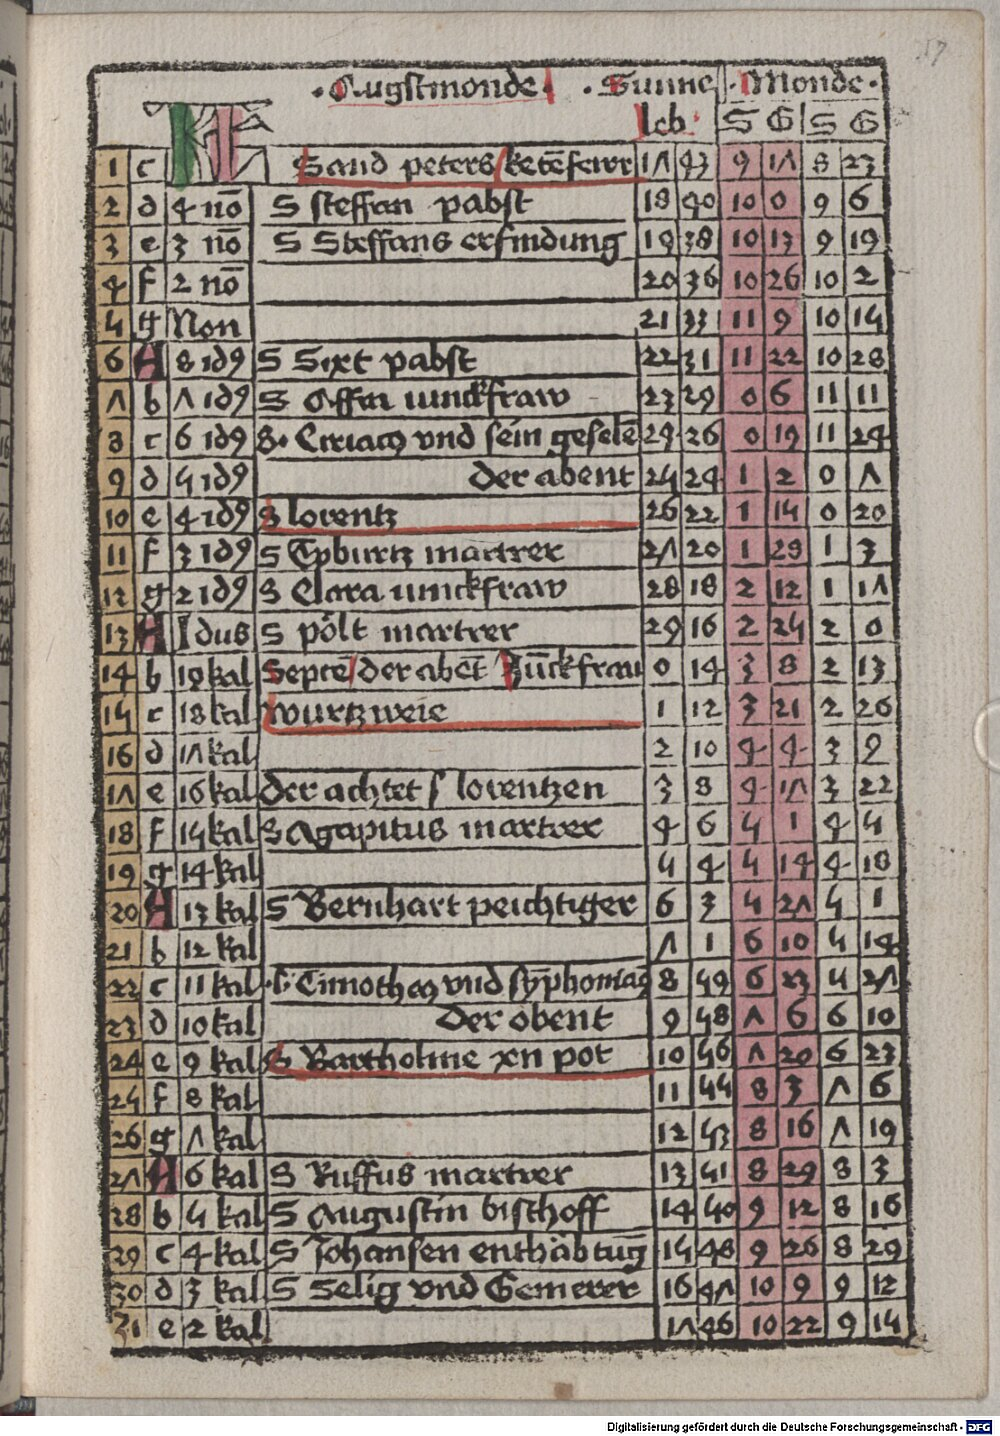 · Augstmonde · · Sunne · Monde ·
KL leb S G S G
1 c Sand peters ketēfeirr 17 43 9 17 8 23
2 d 4 nō S steffan pabst 18 40 10 0 9 6
3 e 3 nō S Steffans erfindung 19 38 10 13 9 19
4 f 2 nō 20 36 10 26 10 2
5 g Non 21 33 11 9 10 15
6 A 8 idꝯ S Sixt pabst 22 31 11 22 10 28
7 b 7 idꝯ S Affra iunckfraw 23 29 0 6 11 11
8 c 6 idꝯ S· Ciriacꝯ vnd sein geselē 24 26 0 19 11 24
9 d 5 idꝯ der abent 25 24 1 2 0 7
10 e 4 idꝯ S lorentz 26 22 1 15 0 20
11 f 3 idꝯ S Tyburtz martrer 27 20 1 29 1 3
12 g 2 idꝯ S Clara iunckfraw 28 18 2 12 1 17
13 A Idus S pölt martrer 29 16 2 25 2 0
14 b 19 kal Septē der abēt Jūckfrau 0 14 3 8 2 13
15 c 18 kal wurtzweie 1 12 3 21 2 26
16 d 17 kal 2 10 4 4 3 9
17 e 16 kal der achtet s lorentzen 3 8 4 17 3 22
18 f 15 kal S Agapitus martrer 4 6 5 1 4 5
19 g 14 kal 5 4 5 14 4 18
20 A 13 kal S Bernhart peichtiger 6 3 5 27 5 1
21 b 12 kal 7 1 6 10 5 14
22 c 11 kal ·s· Timotheꝯ vnd sȳphoriaꝯ 8 59 6 23 5 27
23 d 10 kal der obent 9 58 7 6 6 10
24 e 9 kal S Bartholme xn pot 10 56 7 20 6 23
25 f 8 kal 11 54 8 3 7 6
26 g 7 kal 12 53 8 16 7 19
27 A 6 kal S Ruffus martrer 13 51 8 29 8 3
28 b 5 kal S Augustin bischoff 14 50 9 12 8 16
29 c 4 kal S Johansen enthabtug̅ 15 48 9 26 8 29
30 d 3 kal S Selig vnd Gemerer 16 47 10 9 9 12
31 e 2 kal 17 46 10 22 9 15
Digitalisierung gefördert durch die Deutsche Forschungsgemeinschaft - DFG